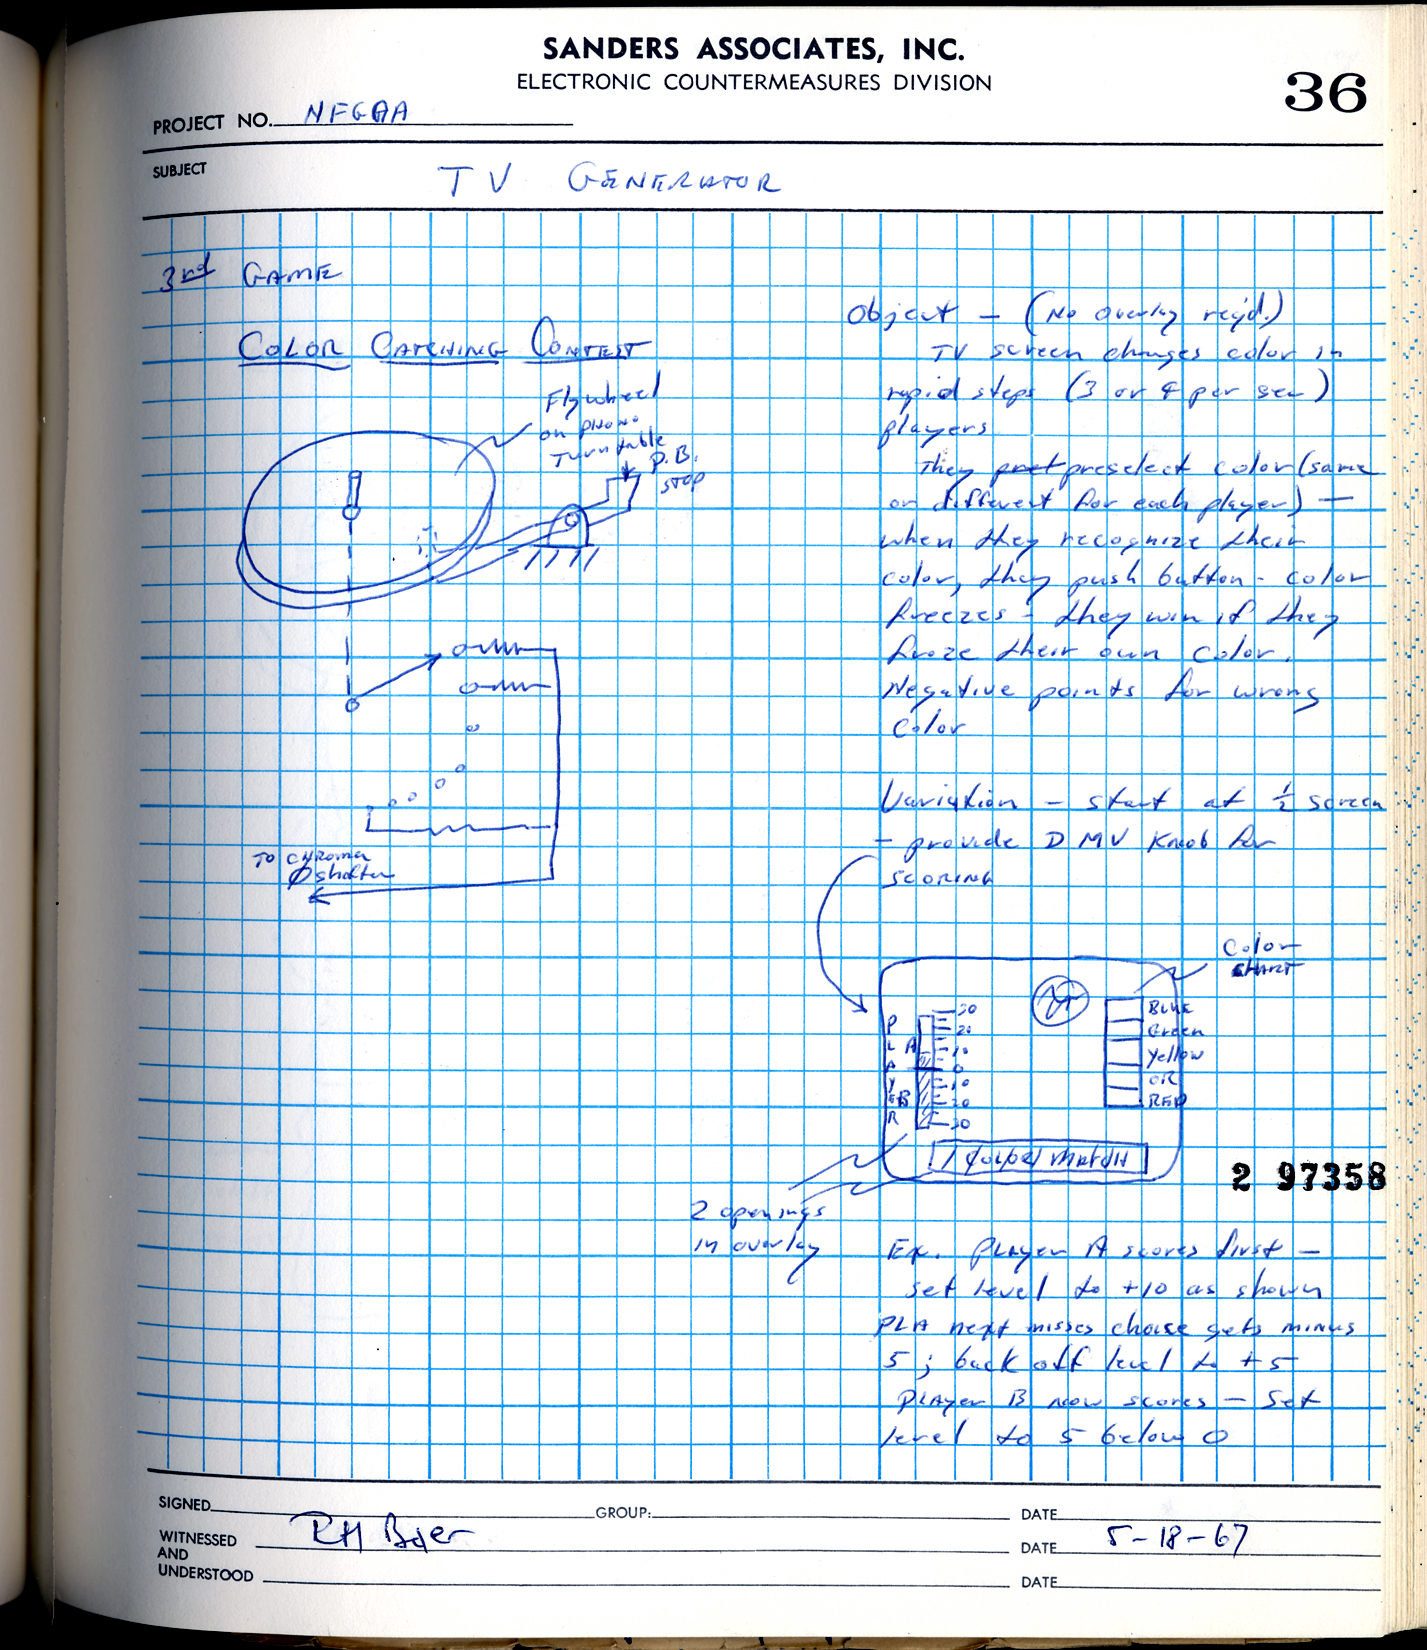 SANDERS ASSOCIATES, INC.
ELECTRONIC COUNTERMEASURES DIVISION
36
PROJECT NO. NFGAA
SUBJECT
TV GENERATOR
3rd GAME
COLOR CATCHING CONTEST
Flywheel
on phono
Turntable
P.B.
STOP
TO CHROMA
Ø shifter
Object - (No overlay req'd.)
TV screen changes color in
rapid steps (3 or 4 per sec)
players
They preselect color (same
or different for each player) —
when they recognize their
color, they push button - color
freezes - they win if they
froze their own color.
Negative points for wrong
color
Variation - start at 1/2 screen
- provide DMV Knob for
SCORING
Color
CHART
PLAYER
A
B
30
20
10
0
10
20
30
BLUE
Green
Yellow
OR
RED
2 openings
in overlay
2 97358
Ex. Player A scores first —
set level to +10 as shown
PLA next misses choice gets minus
5; back off level to +5
PLAYER B now scores — Set
level to 5 below 0
SIGNED
GROUP:
DATE
WITNESSED
AND
UNDERSTOOD
RH Baer
DATE 5-18-67
DATE